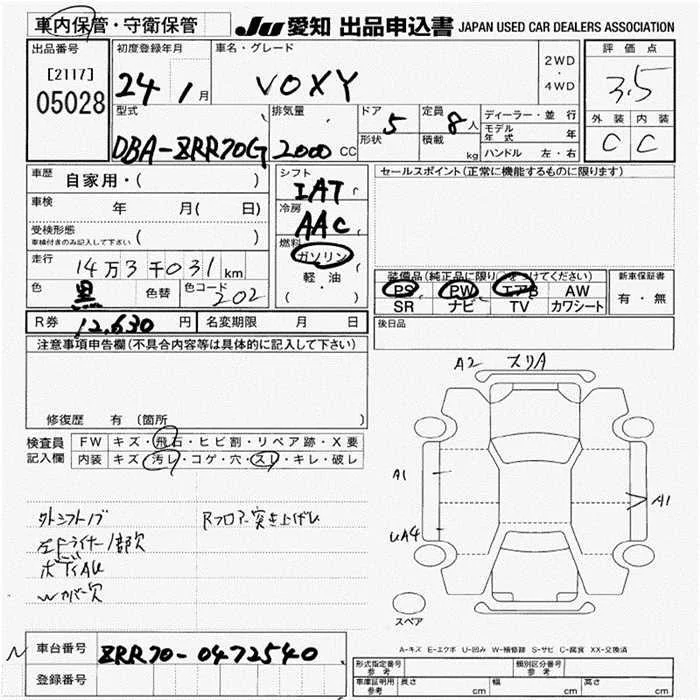 車内保管・守衛保管
JU 愛知 出品申込書 JAPAN USED CAR DEALERS ASSOCIATION
出品番号
[2117]
05028
初度登録年月
24 1月
車名・グレード
VOXY
2WD
・
4WD
評価点
3.5
外装 内装
C C
型式
DBA-ZRR70G
排気量
2000 CC
ドア 5
形状
定員 8人
積載 kg
ディーラー・並行
モデル年式 年
ハンドル 左・右
車歴 自家用・( )
車検 年 月( 日)
受検形態
車検付きのみ記入して下さい ( )
走行 14万3千031km
色 黒 色替 色コード 202
シフト
IAT
冷房
AAC
燃料
ガソリン
軽油
( )
セールスポイント(正常に機能するものに限ります)
装備品(純正品に限り○をつけてください)
PS PW エアB AW
SR ナビ TV カワシート
新車保証書
有・無
R券 12,630円 名変期限 月 日
後日品
注意事項申告欄(不具合内容等は具体的に記入して下さい)
修復歴 有 (箇所 )
検査員
記入欄
FW キズ・飛石・ヒビ割・リペア跡・X要
内装 キズ・汚レ・コゲ・穴・スレ・キレ・破レ
外シフトノブ Rフロアー突き上げし
左Fライナー1部欠
ボディAU
Wカバー欠
A2 スリA
A1
UA4
A1
スペア
A-キズ E-エクボ U-凹み W-補修跡 S-サビ C-腐食 XX-交換済
N 車台番号 ZRR70-0472540
登録番号
形式指定番号 参考
類別区分番号 参考
車庫証明用 参考 長さ cm 幅 cm 高さ cm